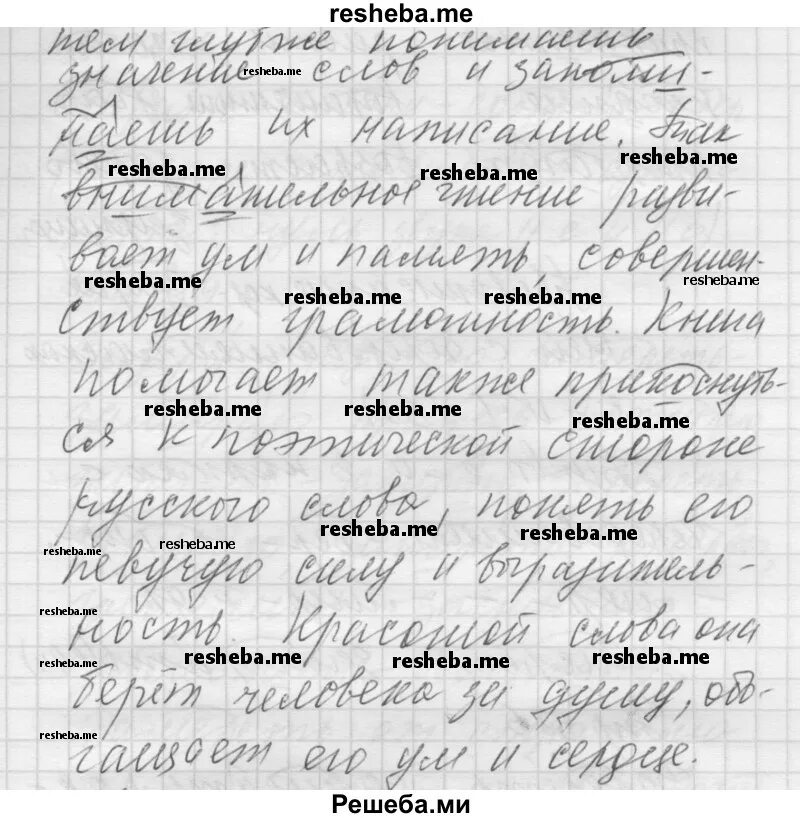 resheba.me
тем глубже понимаешь
значение слов и запоми-
resheba.me
наешь их написание. Так
resheba.me resheba.me resheba.me
внимательное чтение разви-
вает ум и память, совершен-
resheba.me resheba.me resheba.me resheba.me
ствует грамотность. Книга
помогает также прикоснуть-
resheba.me resheba.me resheba.me
ся к поэтической стороне
русского слова, понять его
resheba.me resheba.me resheba.me resheba.me
певучую силу и выразитель-
resheba.me
ность. Красотой слова она
resheba.me resheba.me resheba.me resheba.me
берёт человека за душу, обо-
resheba.me
гащает его ум и сердце.
Решеба.ми